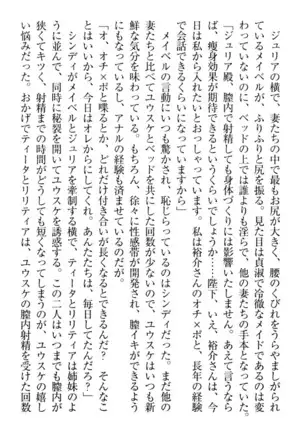 ジュリアの横で、妻たちの中で最もお尻が大きく、腰のくびれをうらやましがられ
ているメイベルが、ふりふりと尻を振る。見た目は貞淑で冷徹なメイドであるのは変
わっていないのに、ベッドの上では誰よりも淫らで、他の妻たちの手本となっていた。
「ジュリア殿、膣内で射精しても身体づくりには影響いたしません。あえて言うなら
ば、痩身効果が期待できるというくらいでしょうか……陛下、いえ、裕介さん。今
日は私から入れたいとおっしゃっています。私は裕介さんのオチ×ポと、長年の経験
で会話できるくらいになっていますから」
メイベルの言動にいつも驚かされ、恥じらっているのはシンディだ。まだ他の
妻たちと比べてユウスケとベッドを共にした回数が少ないので、ユウスケはいつも新
鮮な気分を味わっている。もちろん、徐々に性感帯が開発され、膣イキができるよう
にもなっているし、アナルの経験も済ませているのだが。
「オ、オチ×ポと喋るとか、どれだけ付き合いが長くなるとできるんだ？　そんなこ
とはいいから、今日はオレからにしてくれ。あんたたちは、毎日してたんだろ？」
シンディがメイベルとジュリアを牽制する横で、ティータとリリティアは姉妹のよ
うに並んで、同時に秘裂を開いてユウスケを誘惑する。この二人はいつまでも膣内が
狭くてキツく、射精までの時間がどうしても短くなってしまうのが、ユウスケの嬉し
い悩みだった。おかげでティータとリリティアは、ユウスケの膣内射精を受けた回数